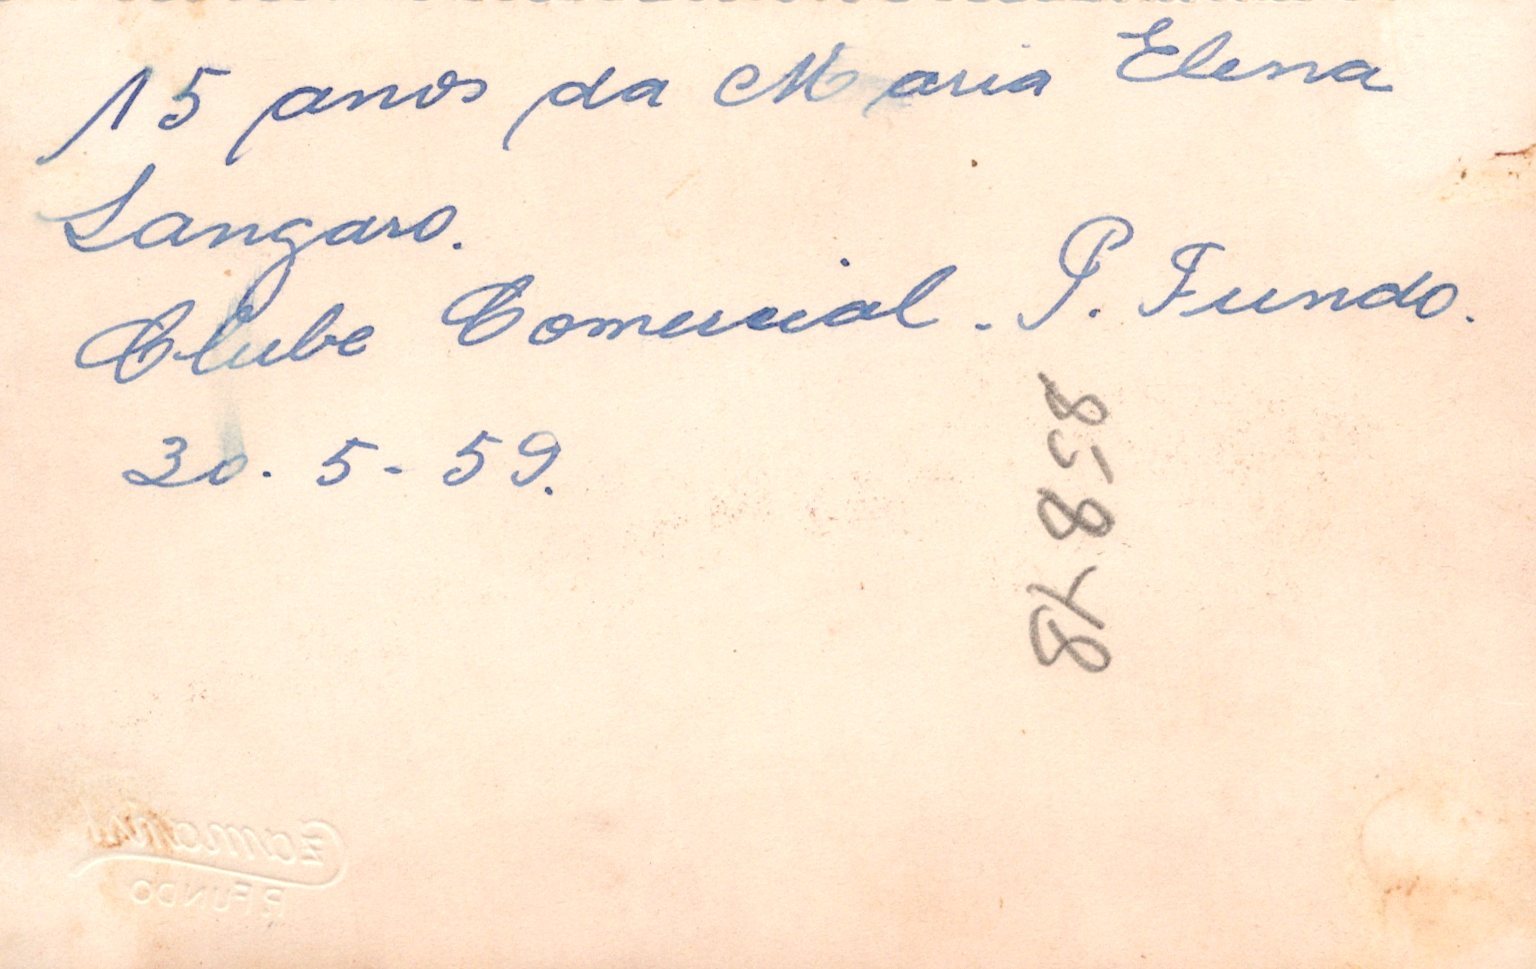 15 anos da Maria Elena
Langaro.
Clube Comercial. P. Fundo.
30. 5- 59.
85848
P. FUNDO